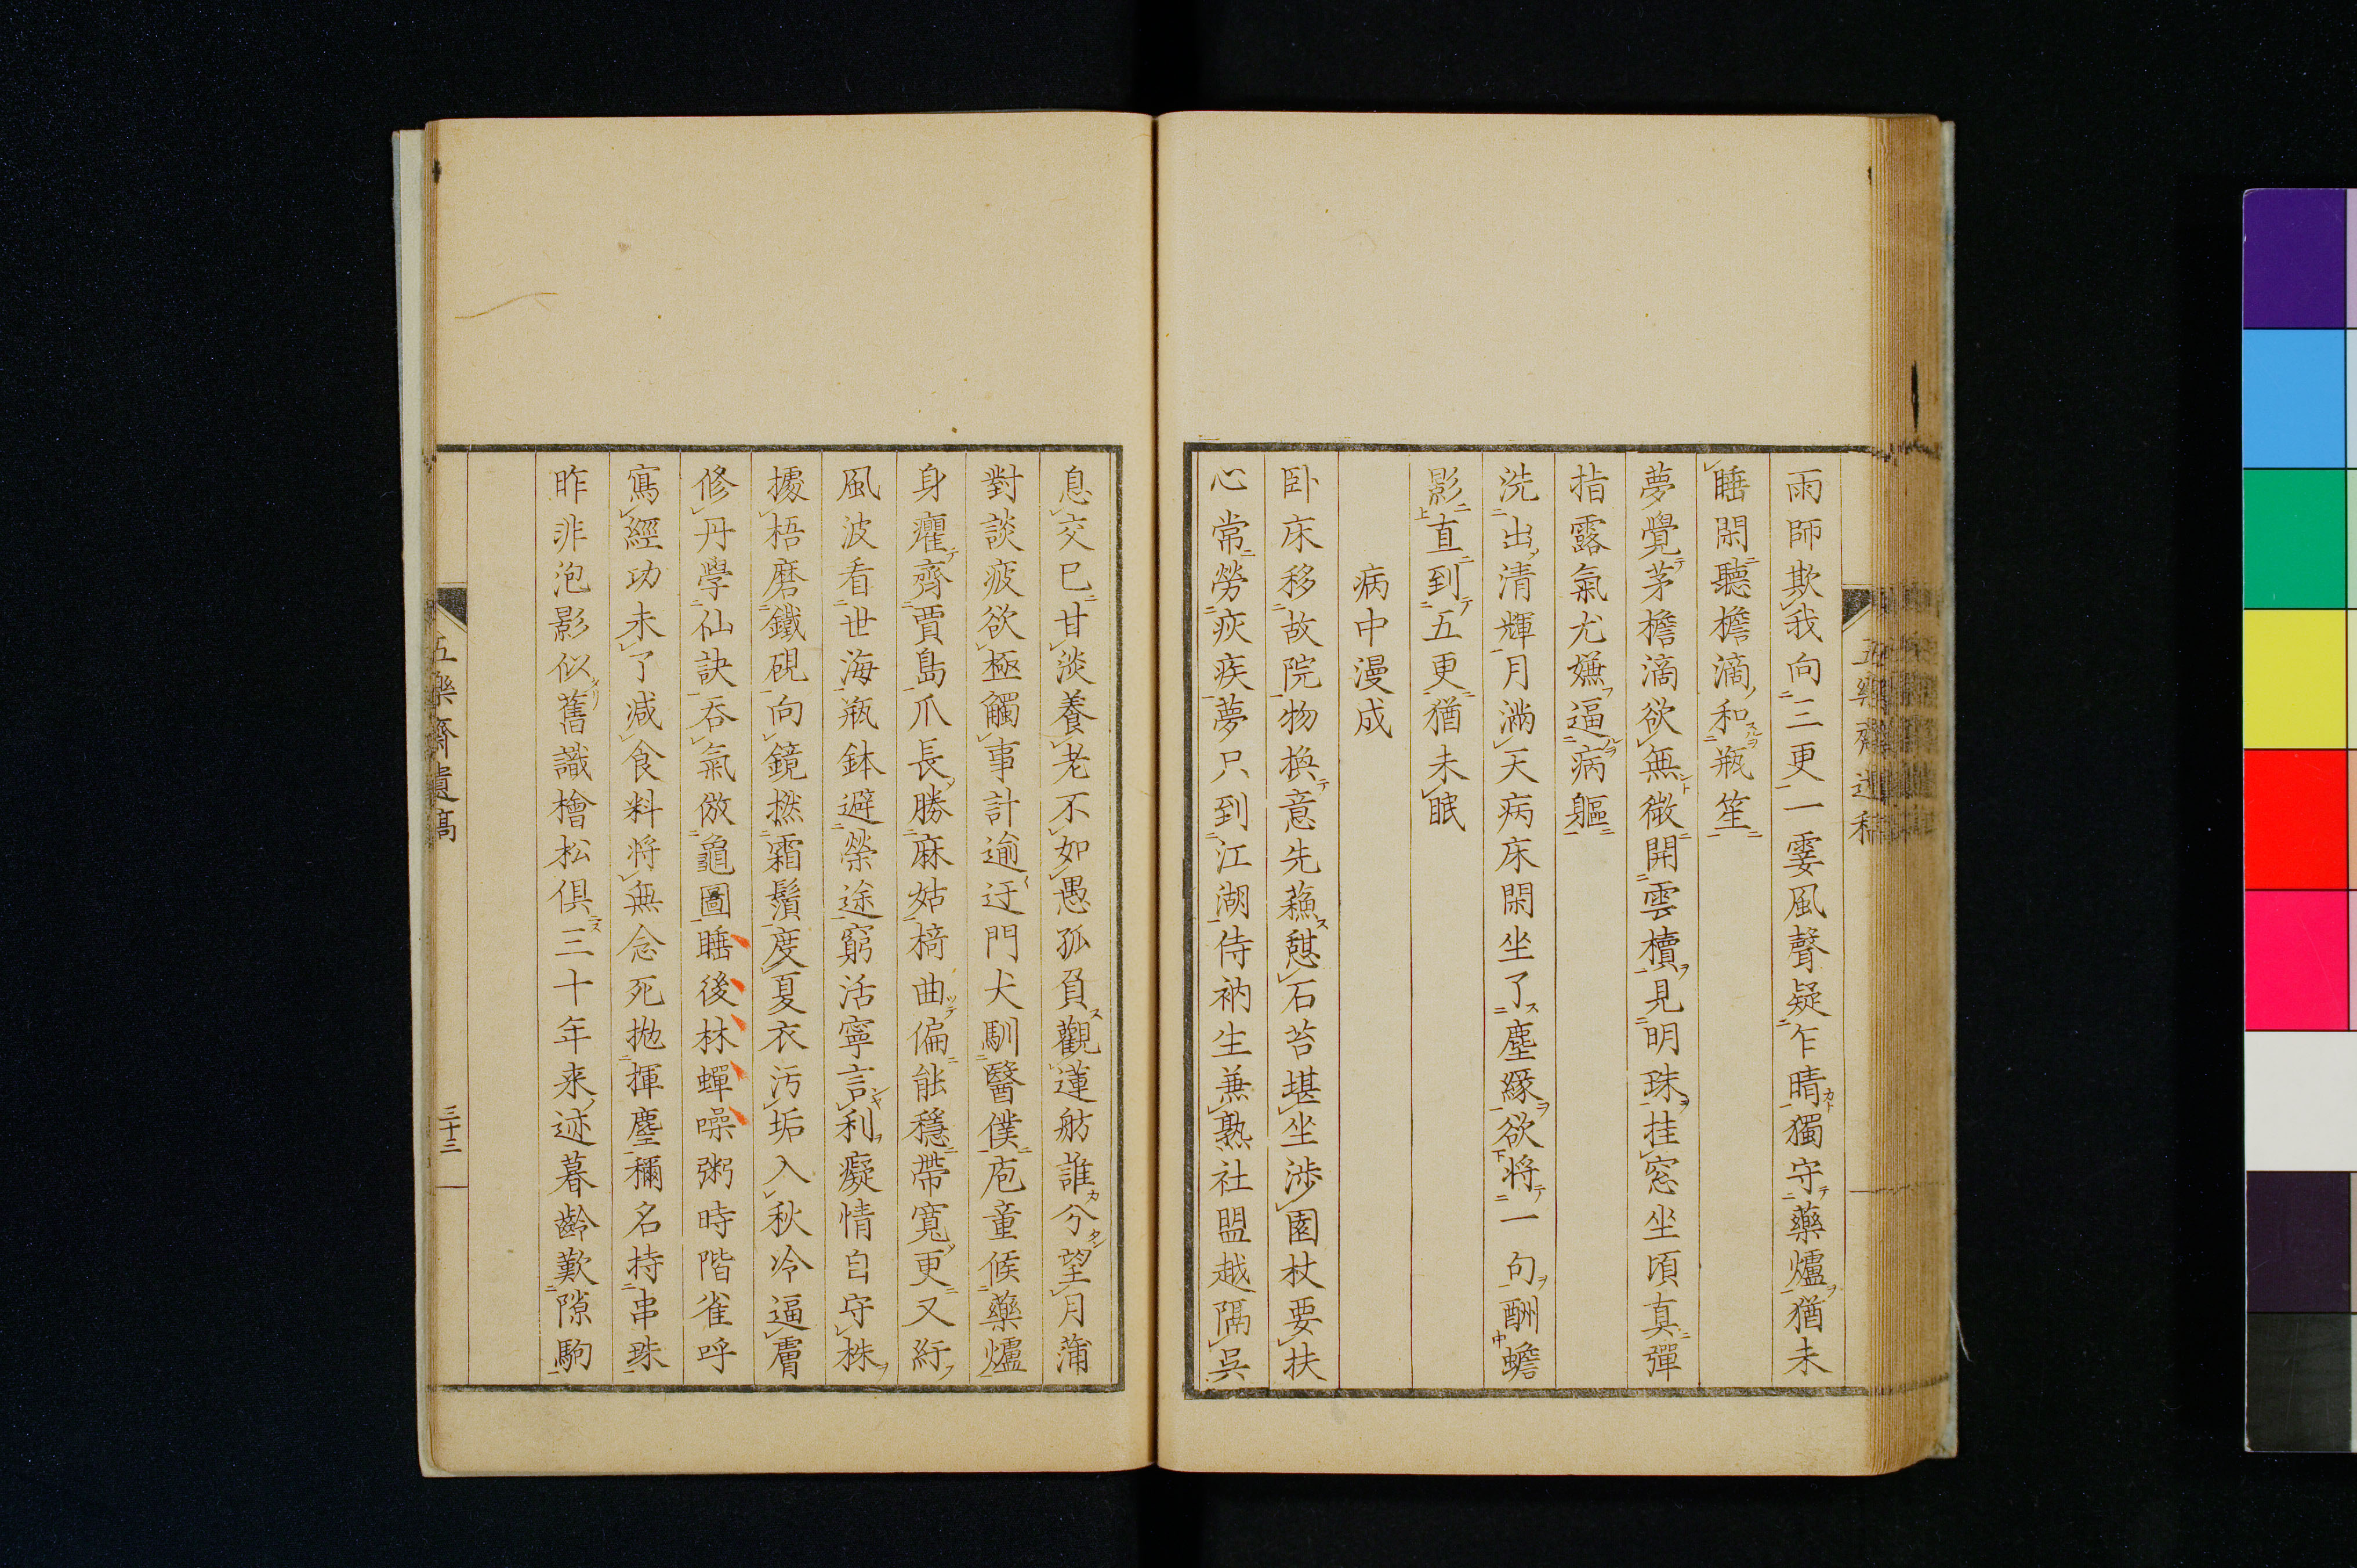 雨師欺我向三更一霎風聲疑乍晴獨守藥爐猶未
睡閑聽檐滴和瓶笙
夢覺茅檐滴欲無微開雲櫝見明珠挂窓坐頃真彈
指露氣尤嫌逼病軀
洗出清輝月滿天病床閑坐了塵緣欲將一句酬蟾
影直到五更猶未眠
病中漫成
卧床移故院物換意先蘓憇石苔堪坐渉園杖要扶
心常勞疢疾夢只到江湖侍衲生兼熟社盟越隔吳
息交已甘淡養老不如愚孤負觀蓮舫誰分望月蒲
對談疲欲極觸事計逾迂門犬馴醫僕庖童候藥爐
身癯齊賈島爪長勝麻姑椅曲偏能穩帶寬更又紆
風波看世海瓶鉢避榮途窮活寧言利癡情自守株
據梧磨鐵硯向鏡撚霜鬚度夏衣汚垢入秋冷逼膚
修丹學仙訣吞氣倣龜圖睡後林蟬噪粥時階雀呼
寫經功未了減食料將無念死抛揮麈稱名持串珠
昨非泡影似舊識檜松俱三十年来迹暮齡歎隙駒
五樂齋遺稿
三十三